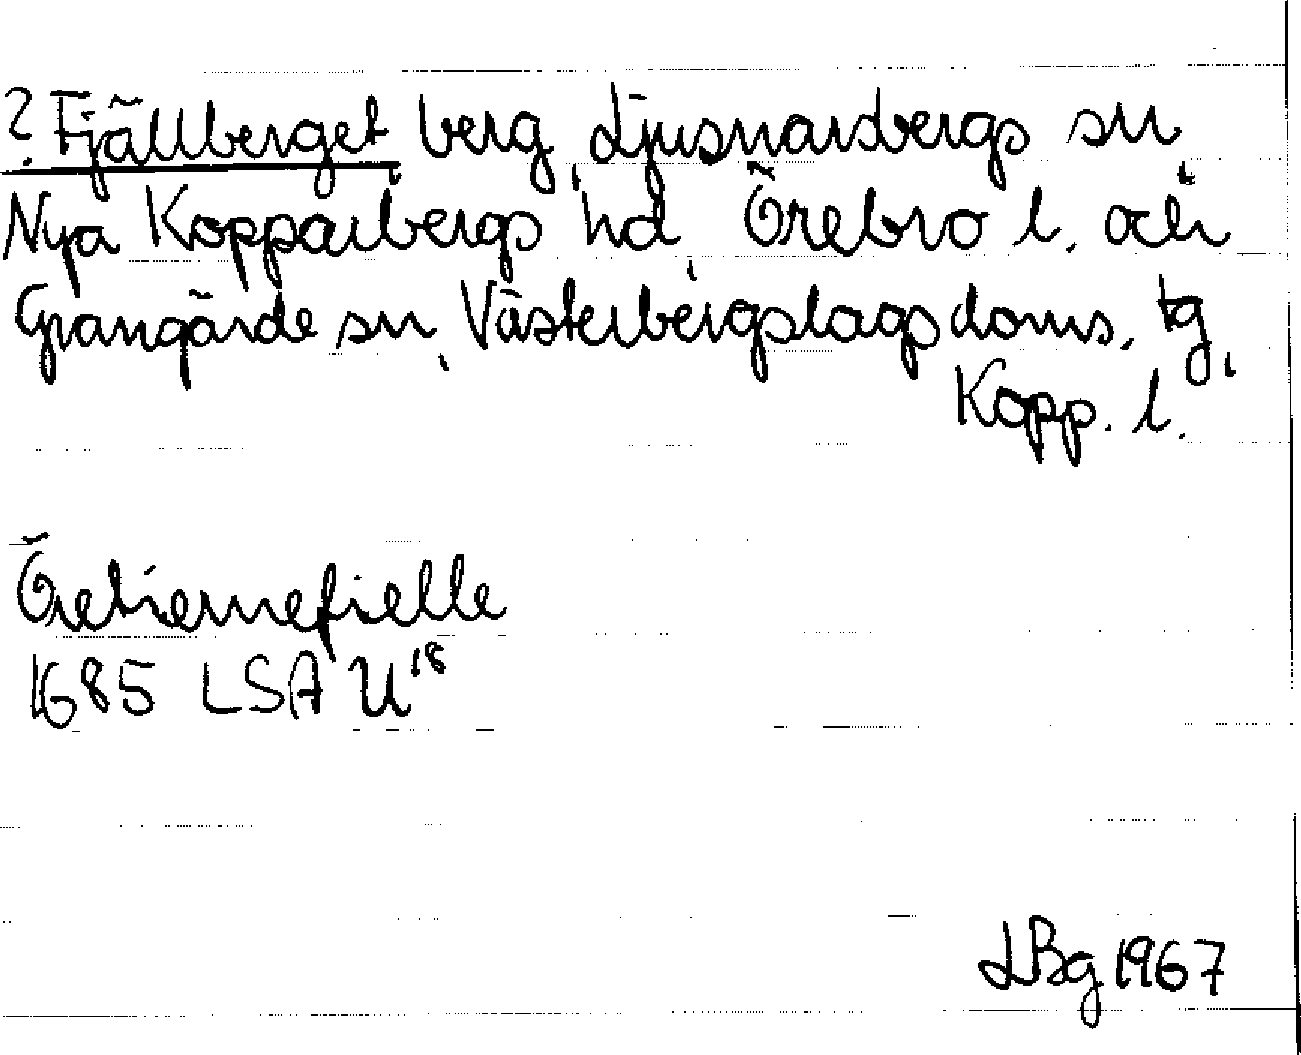 ? Fjällberget berg, Ljusnarsbergs sn,
Nya Kopparbergs hd, Örebro l. och
Grangärde sn, Västerbergslags doms. tg,
Kopp. l.
Öretiernefielle
1685 LSA U18
LBg 1967